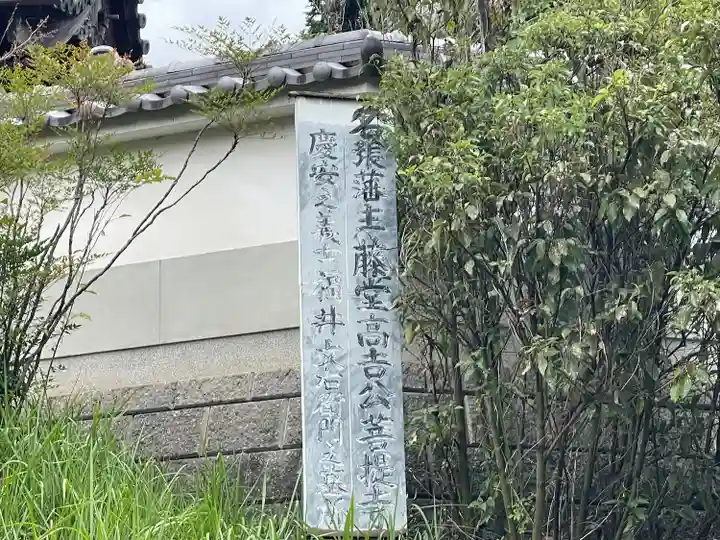 名張藩主藤堂高吉公菩提寺
慶安之義士福井文右衛門之墓